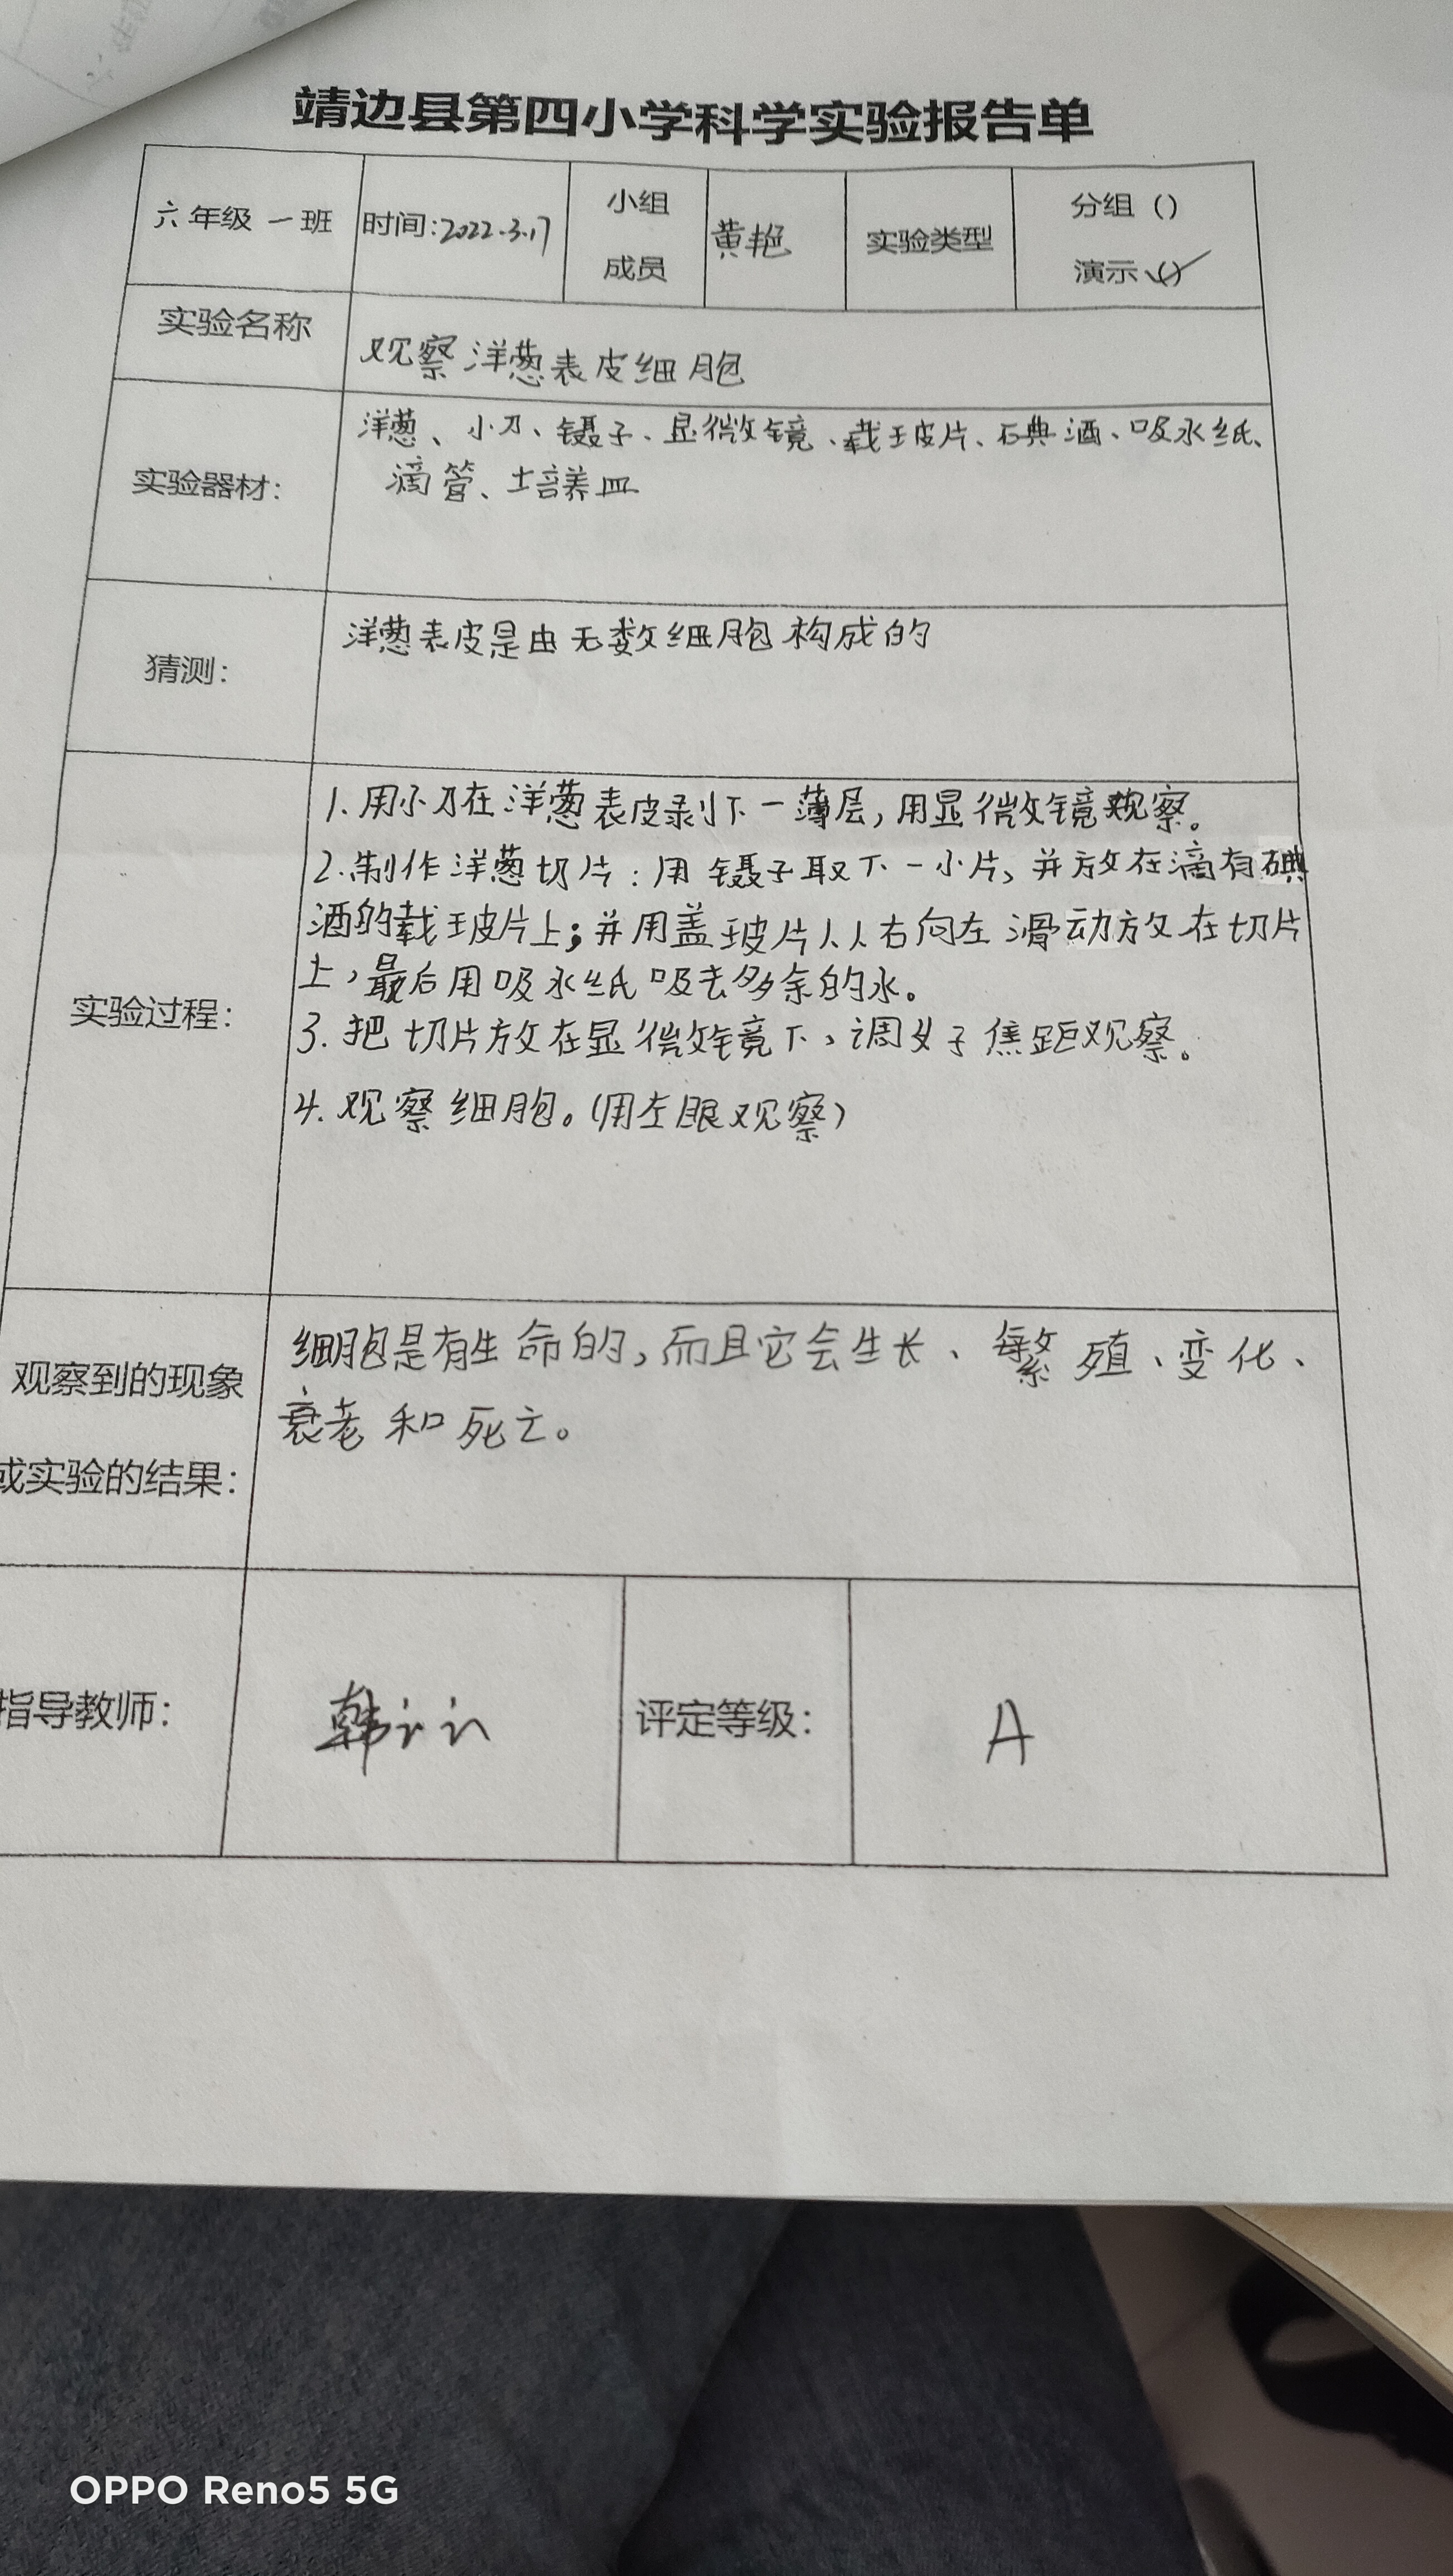 靖边县第四小学科学实验报告单
六年级 一班 时间:2022.3.17 小组成员 黄艳 实验类型 分组 () 演示 (✓)
实验名称 观察洋葱表皮细胞
实验器材: 洋葱、小刀、镊子、显微镜、载玻片、碘酒、吸水纸、
滴管、培养皿
猜测: 洋葱表皮是由无数细胞构成的
实验过程:
1.用小刀在洋葱表皮剥下一薄层,用显微镜观察。
2.制作洋葱切片:用镊子取下一小片,并放在滴有碘
酒的载玻片上;并用盖玻片从右向左滑动放在切片
上,最后用吸水纸吸去多余的水。
3.把切片放在显微镜下,调好焦距观察。
4.观察细胞。(用左眼观察)
观察到的现象
或实验的结果:
细胞是有生命的,而且它会生长、繁殖、变化、
衰老和死亡。
指导教师: 韩 评定等级: A
OPPO Reno5 5G